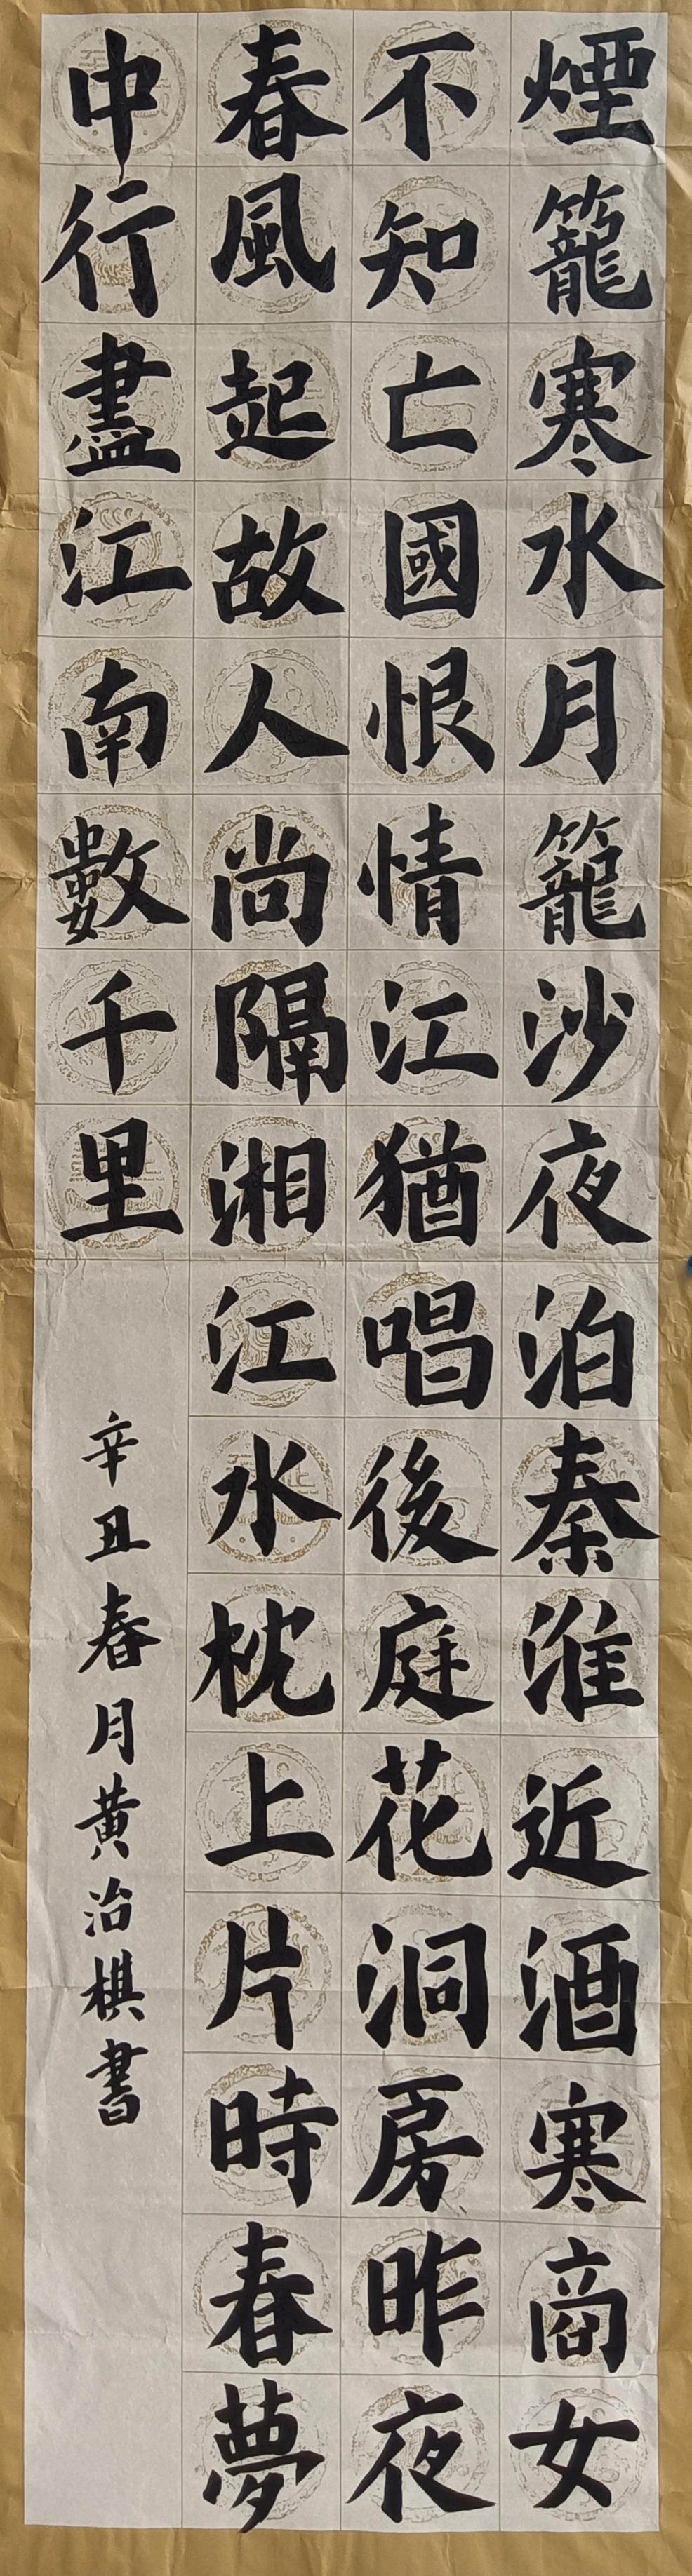 煙籠寒水月籠沙夜泊秦淮近酒寒商女
不知亡國恨情江猶唱後庭花洞房昨夜
春風起故人尚隔湘江水枕上片時春夢
中行盡江南數千里
辛丑春月黃治棋書